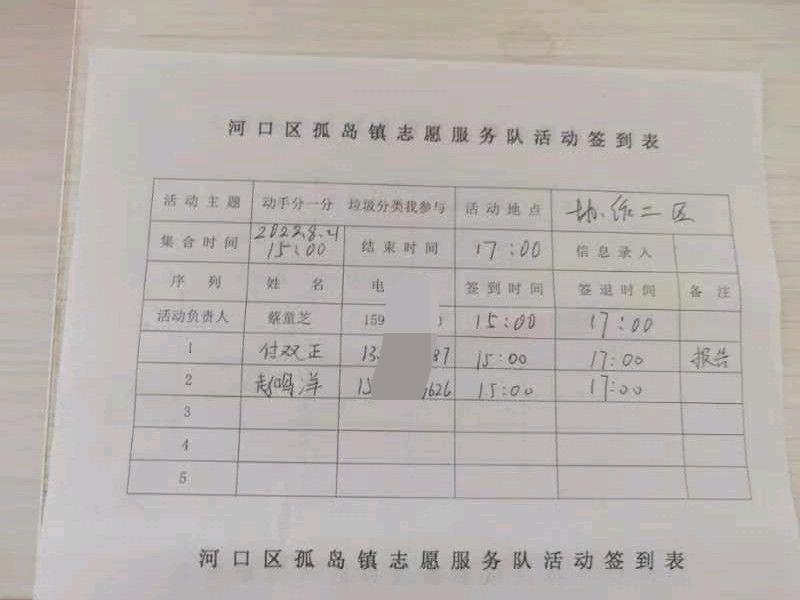 河口区孤岛镇志愿服务队活动签到表
活动主题 动手分一分 垃圾分类我参与 活动地点 协作二区
集合时间 2022.8.21 15:00 结束时间 17:00 信息录入
序列 姓名 电 签到时间 签退时间 备注
活动负责人 蔡童芝 159 15:00 17:00
1 付双正 13 87 15:00 17:00 报告
2 赵鸣洋 15 1626 15:00 17:00
3
4
5
河口区孤岛镇志愿服务队活动签到表